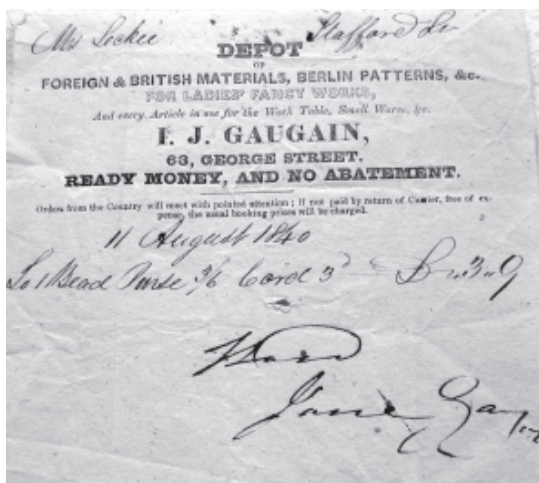 Mr Leckie Stafford St
DEPOT
OF
FOREIGN & BRITISH MATERIALS, BERLIN PATTERNS, &c.
FOR LADIES' FANCY WORKS,
And every Article in use for the Work Table, Small Wares, &c.
I. J. GAUGAIN,
63, GEORGE STREET.
READY MONEY, AND NO ABATEMENT.
Orders from the Country will meet with pointed attention; If not paid by return of Carrier, free of ex-
pense, the usual booking prices will be charged.
11 August 1840
To 1 Bead Purse 3/6 Cord 3d 3 " 9
Jane Gau